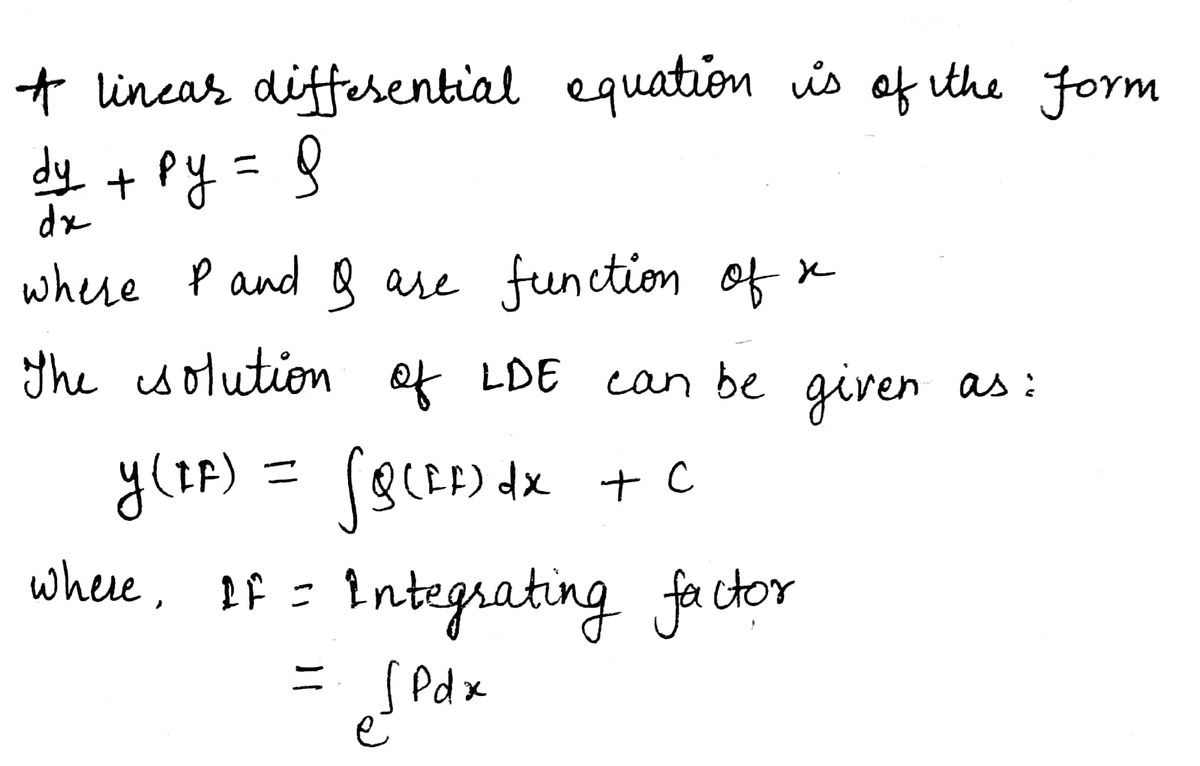 A linear differential equation is of the form
dy/dx + Py = Q
where P and Q are function of x
The solution of LDE can be given as:
y(IF) = ∫Q(IF) dx + C
where, IF = Integrating factor
= e^∫Pdx